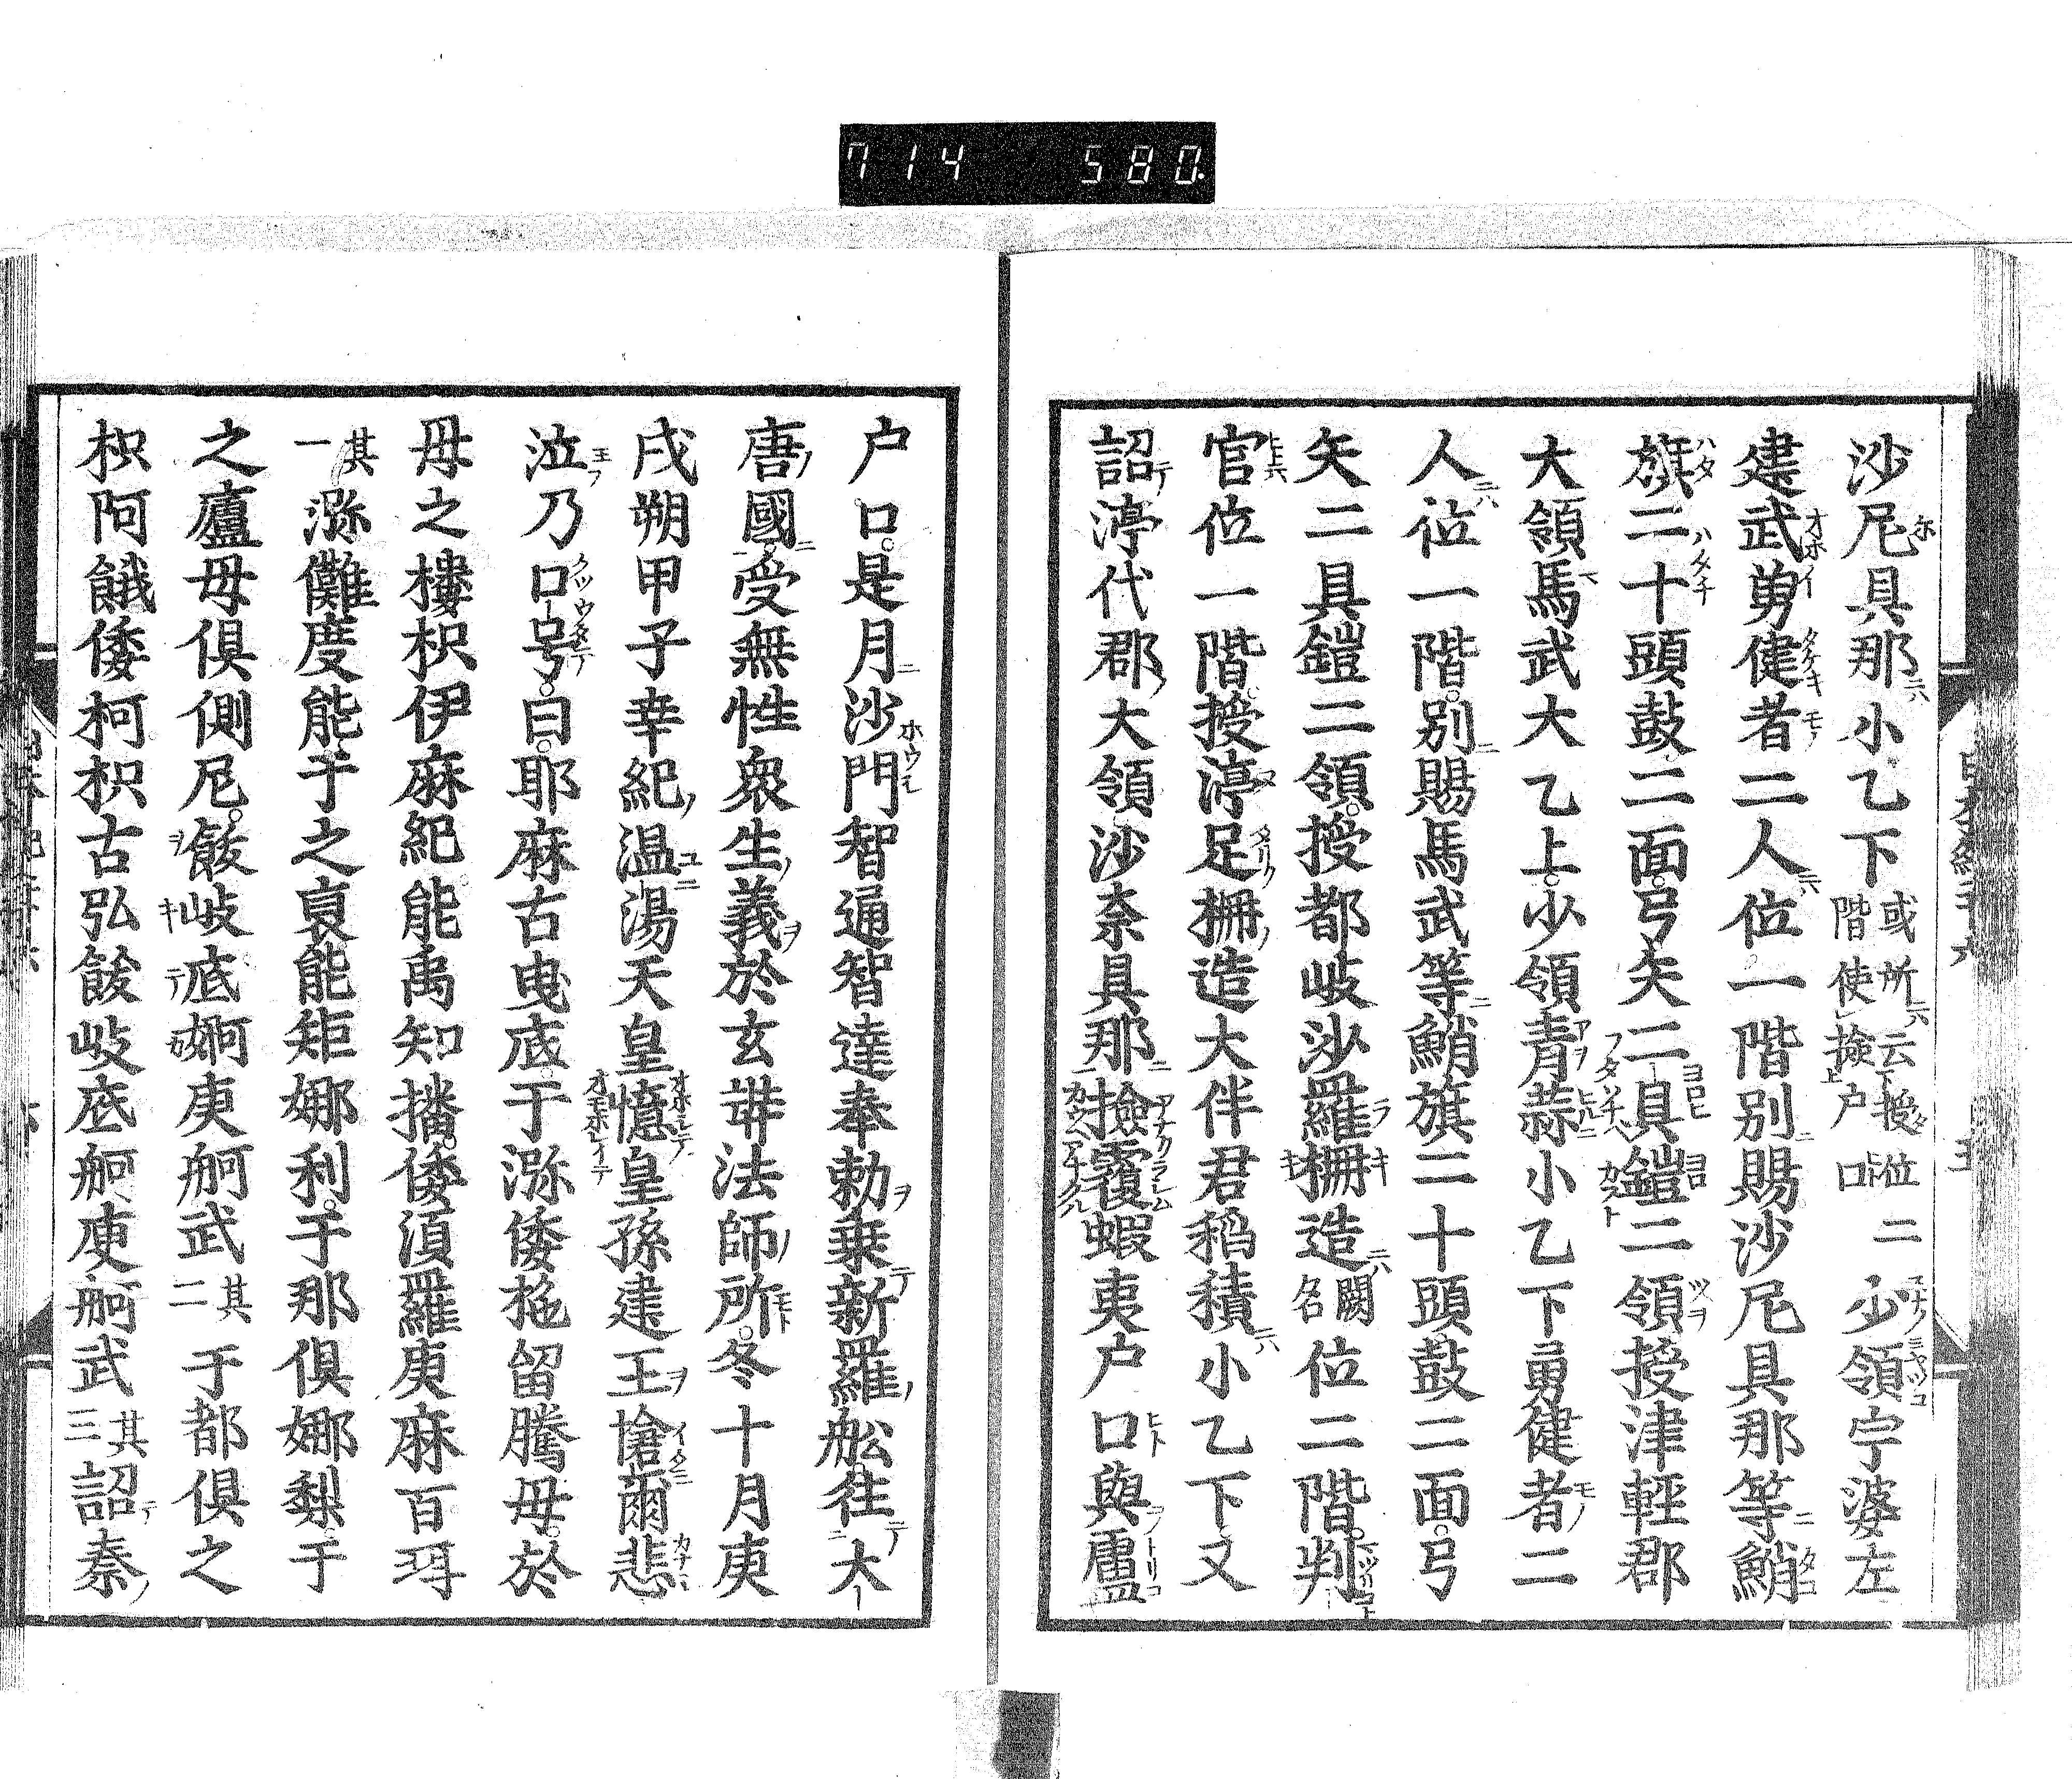 714 580.
沙尼具那小乙下或所云授位二階使撿戸口少領宇婆左
建武勇健者二人位一階別賜沙尼具那等鮹
旗二十頭鼓二面弓矢二具鎧二領授津輕郡
大領馬武大乙上少領青蒜小乙下勇健者二
人位一階別賜馬武等鮹旗二十頭鼓二面弓
矢二具鎧二領授都岐沙羅柵造闕名位二階判
官位一階授渟足柵造大伴君稻積小乙下又
詔渟代郡大領沙奈具那撿覆蝦夷戸口與虜
戸口是月沙門智通智達奉勅乗新羅舩徃大
唐國受無性衆生義於玄弉法師所冬十月庚
戌朔甲子幸紀温湯天皇憶皇孫建王愴爾悲
泣乃口号曰耶麻古曳底于瀰倭柂留騰母於
母之樓枳伊麻紀能禹知播倭湏羅庚麻百珥
其一瀰儺度能于之裒能矩娜利于那俱娜梨于
之廬母俱側尼飫岐底舸庚舸武其二于都俱之
枳阿餓倭柯枳古弘飫岐底舸庚舸武其三詔秦